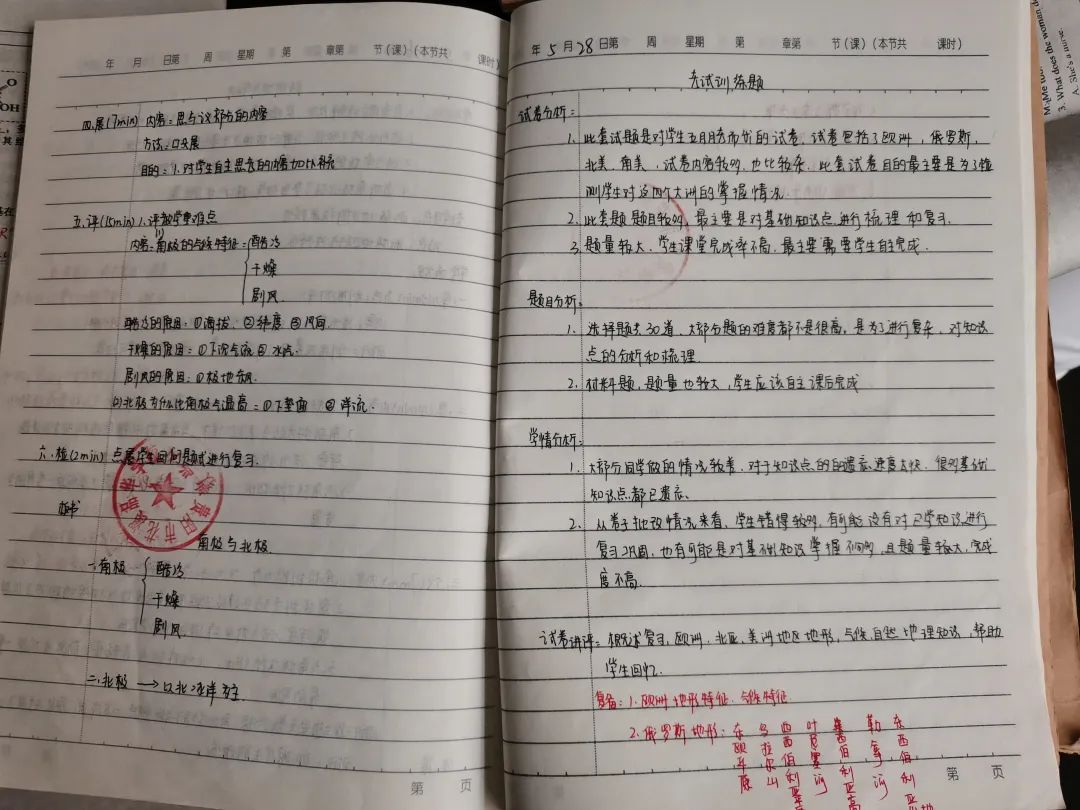 年 月 日第 周 星期 第 章第 节(课)(本节共 课时)
四.展(7min) 内容:思与议部分的内容
方法:口头展
目的:1.对学生自主思考的内容加以补充
五.评(15min) 1.评教学重难点
内容:(1)南极的气候特征:酷冷
干燥
剧风
酷冷的原因:①海拔 ②纬度 ③风向
干燥的原因:①下沉气流 ② 水汽
剧风的原因:①极地东风
(2)北极为什么比南极气温高:①下垫面 ②洋流.
六.检(2min) 点答学生回问题或进行复习.
板书
南极与北极
一.南极 酷冷
干燥
剧风
二.北极 → 以北冰洋为主
第 页
年 5 月 28 日第 周 星期 第 章第 节(课)(本节共 课时)
考试训练题
试卷分析:
1. 此套试题是对学生五月月考而析的试卷.试卷包括了欧洲,俄罗斯,
北美.南美.试卷内容较多.也比较杂.此套试卷目的最主要是为了检
测学生对这四个大洲的掌握情况.
2. 此套题题目较多.最主要是对基础知识点进行梳理和复习.
3. 题量较大.学生课堂完成率不高.最主要需要学生自主完成.
题目分析:
1. 选择题共30道.大部分题的难度都不是很高,是为了进行复杂.对知识
点的分析和梳理.
2. 材料题,题量也较大,学生应该自主课后完成
学情分析:
1. 大部分同学做的情况较差.对于知识点的的遗忘速度太快.很多基础
知识点都已遗忘.
2. 从卷子批改情况来看.学生错得较多.有可能没有对已学知识进行
复习巩固,也有可能是对基础知识掌握不够多,且题量较大,完成
度不高.
试卷讲评:概述复习.欧洲.北亚.美洲地区地形,气候自然地理知识.帮助
学生回忆.
复备:1.欧洲地形特征.气候特征
2.俄罗斯地形:东欧平原 乌拉尔山 西西伯利亚 叶尼塞河 勒拿河 东西伯利亚
第 页